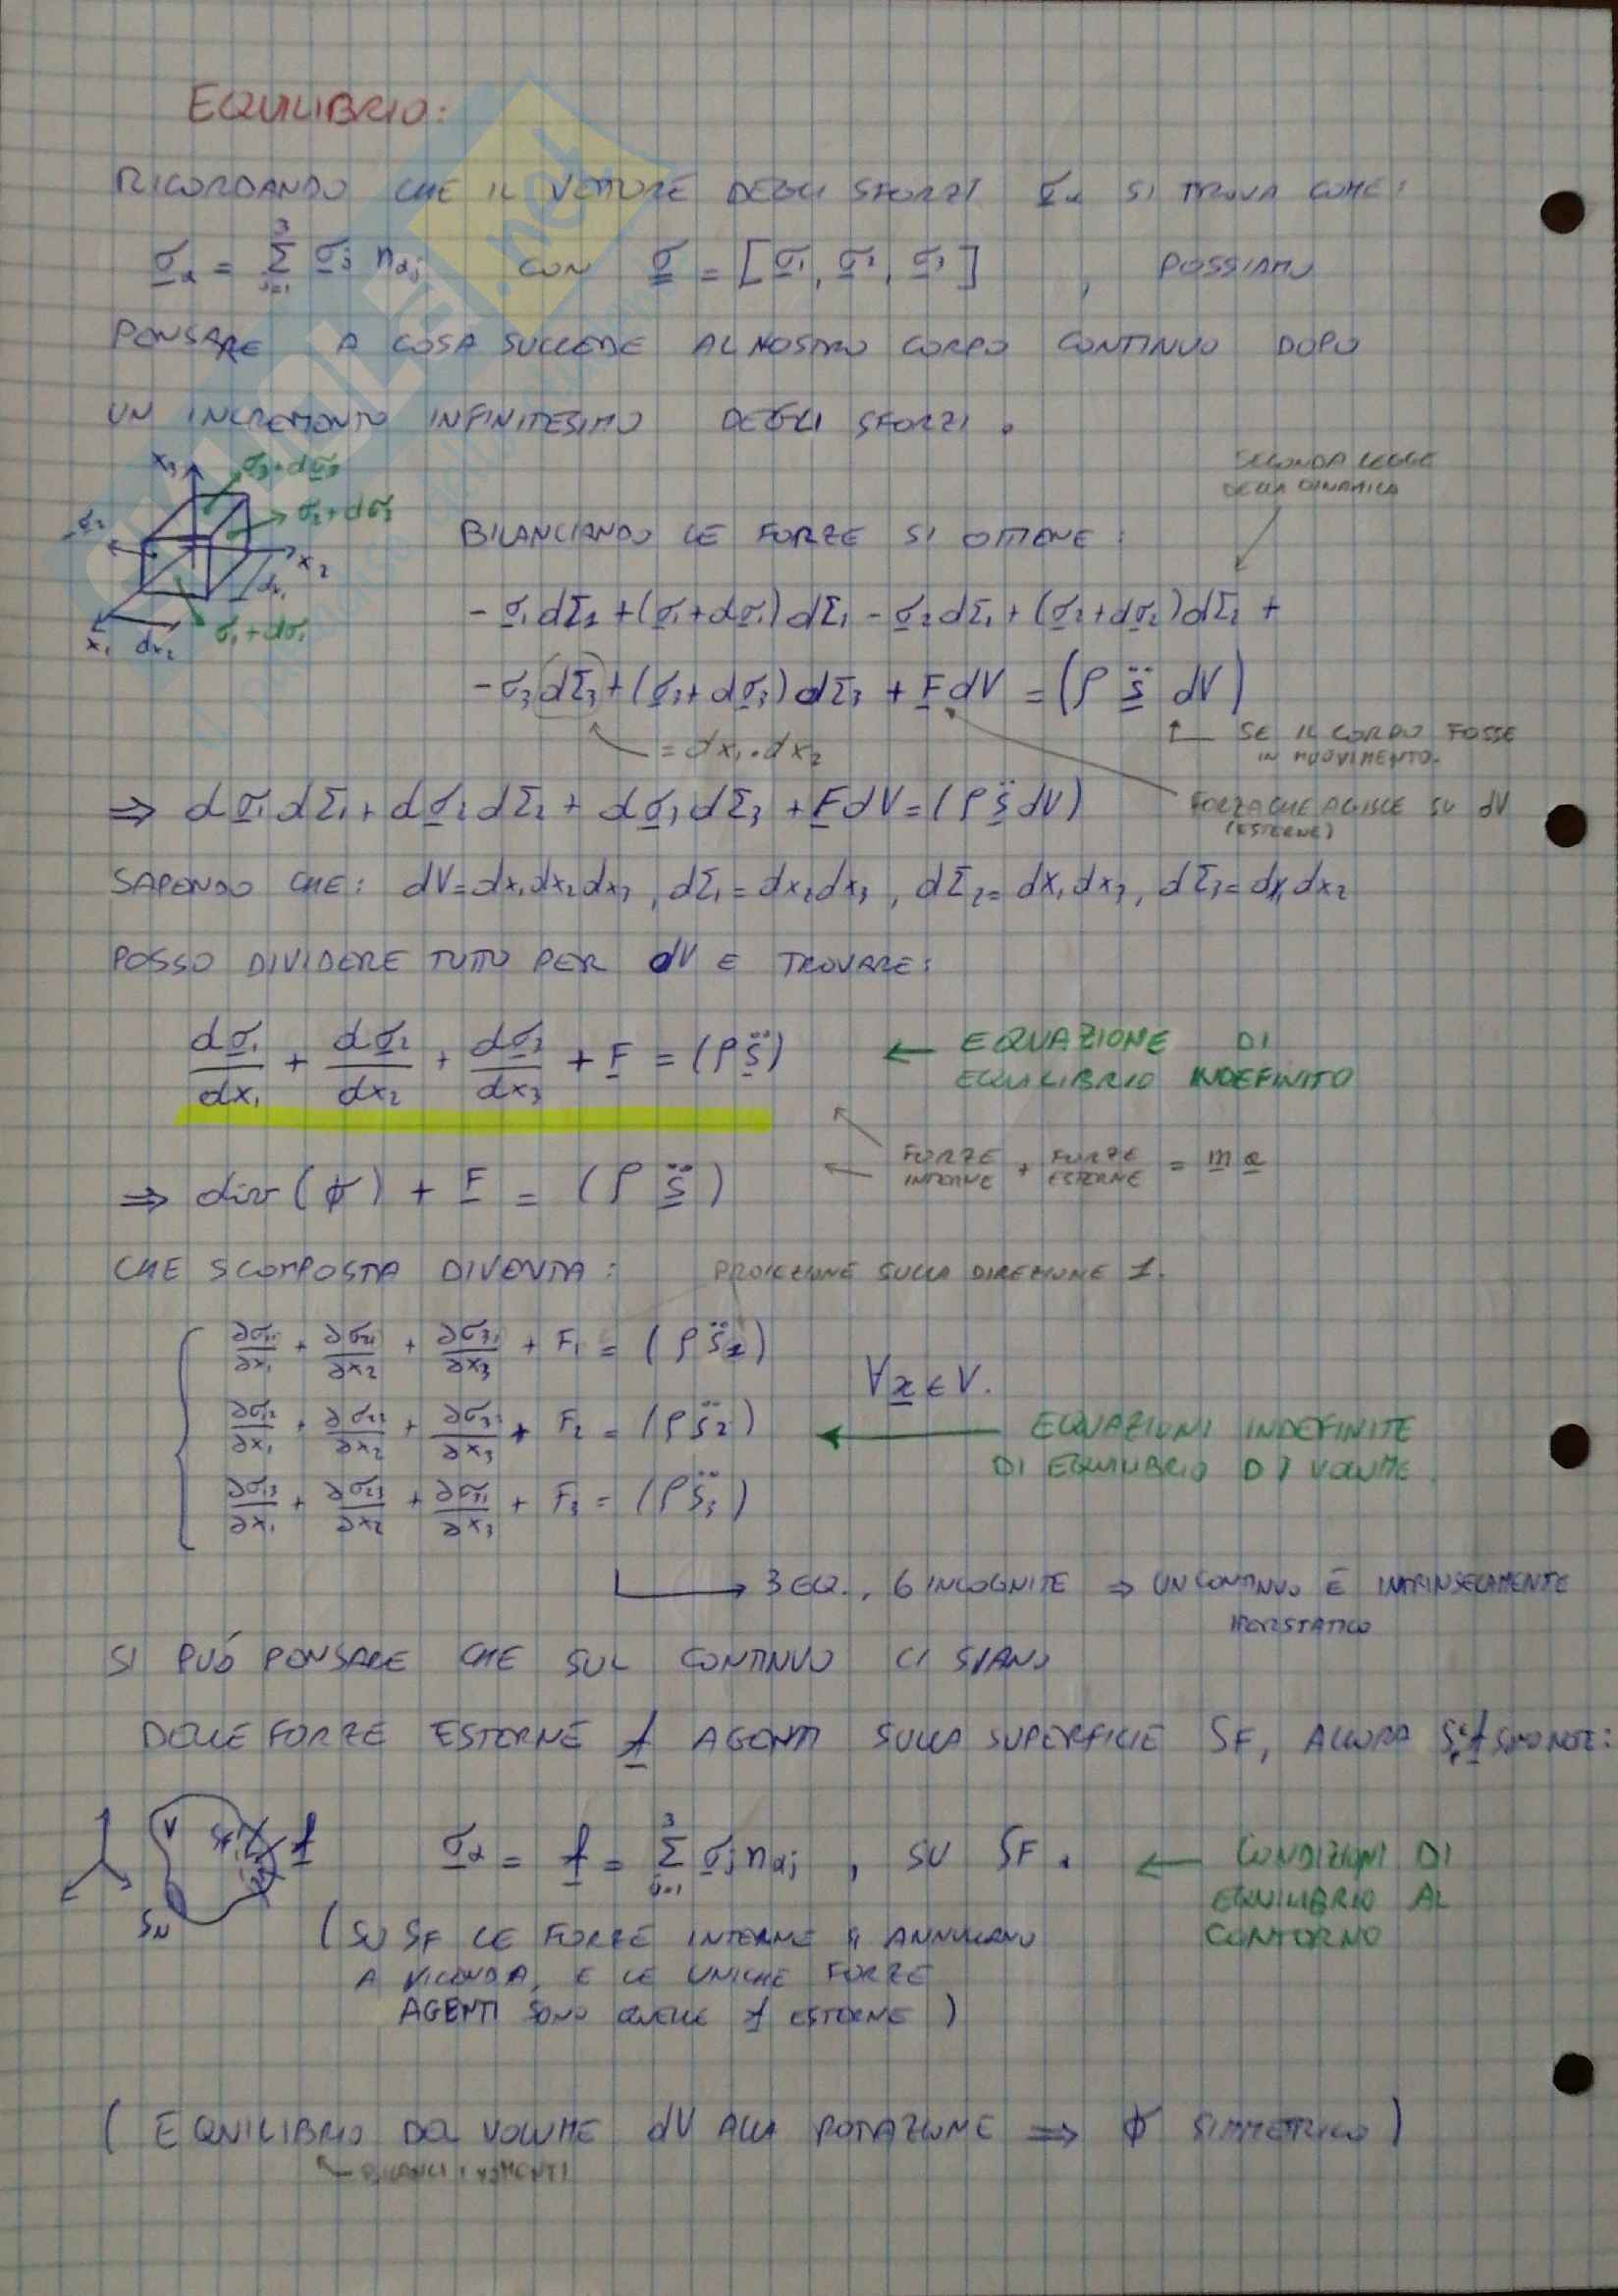 EQUILIBRIO:
RICORDANDO CHE IL VETTORE DEGLI SFORZI σα SI TROVA COME:
σα = Σ_{j=1}^{3} σj nαj CON σ = [σ1, σ2, σ3] , POSSIAMO
PENSARE A COSA SUCCEDE AL NOSTRO CORPO CONTINUO DOPO
UN INCREMENTO INFINITESIMO DEGLI SFORZI.
x3 σ3+dσ3
-σ2 σ2+dσ2
x2
dx1
x1 dx2 σ1+dσ1
SECONDA LEGGE
DELLA DINAMICA
BILANCIANDO LE FORZE SI OTTIENE:
- σ1 dΣ1 + (σ1+dσ1) dΣ1 - σ2 dΣ2 + (σ2+dσ2) dΣ2 +
- σ3 dΣ3 + (σ3+dσ3) dΣ3 + F dV = (ρ s̈ dV)
= dx1 · dx2
SE IL CORPO FOSSE
IN MOVIMENTO.
⇒ dσ1 dΣ1 + dσ2 dΣ2 + dσ3 dΣ3 + F dV = (ρ s̈ dV)
FORZA CHE AGISCE SU dV
(ESTERNE)
SAPENDO CHE: dV = dx1 dx2 dx3 , dΣ1 = dx2 dx3 , dΣ2 = dx1 dx3 , dΣ3 = dx1 dx2
POSSO DIVIDERE TUTTO PER dV E TROVARE:
dσ1/dx1 + dσ2/dx2 + dσ3/dx3 + F = (ρ s̈) ← EQUAZIONE DI
EQUILIBRIO INDEFINITO
FORZE INTERNE + FORZE ESTERNE = m a
⇒ div(σ) + F = (ρ s̈)
CHE SCOMPOSTA DIVENTA: PROIEZIONE SULLA DIREZIONE 1.
∂σ11/∂x1 + ∂σ21/∂x2 + ∂σ31/∂x3 + F1 = (ρ s̈1)
∀x ∈ V.
∂σ12/∂x1 + ∂σ22/∂x2 + ∂σ32/∂x3 + F2 = (ρ s̈2) ← EQUAZIONI INDEFINITE
DI EQUILIBRIO DI VOLUME
∂σ13/∂x1 + ∂σ23/∂x2 + ∂σ33/∂x3 + F3 = (ρ s̈3)
→ 3 EQ., 6 INCOGNITE ⇒ UN CONTINUO È INTRINSECAMENTE
IPERSTATICO
SI PUÓ PENSARE CHE SUL CONTINUO CI SIANO
DELLE FORZE ESTERNE f AGENTI SULLA SUPERFICIE SF, ALLORA SONO NOTE:
V SF f
σα = f = Σ_{j=1}^{3} σj nαj , SU SF. ← CONDIZIONI DI
EQUILIBRIO AL
CONTORNO
SU
(SU SF LE FORZE INTERNE SI ANNULLANO
A VICENDA, E LE UNICHE FORZE
AGENTI SONO QUELLE f ESTERNE)
(EQUILIBRIO DEL VOLUME dV ALLA ROTAZIONE ⇒ σ SIMMETRICO)
.net